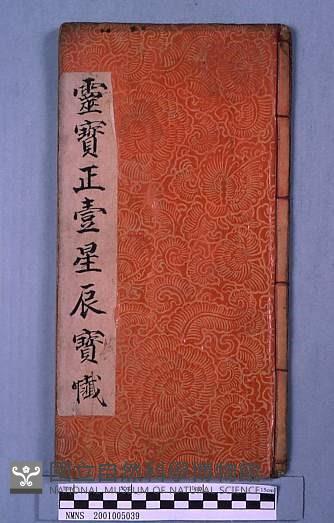 靈寶正壹星辰寶懺
國立自然科學博物館
NATIONAL MUSEUM OF NATURAL SCIENCE
NMNS 2001005039